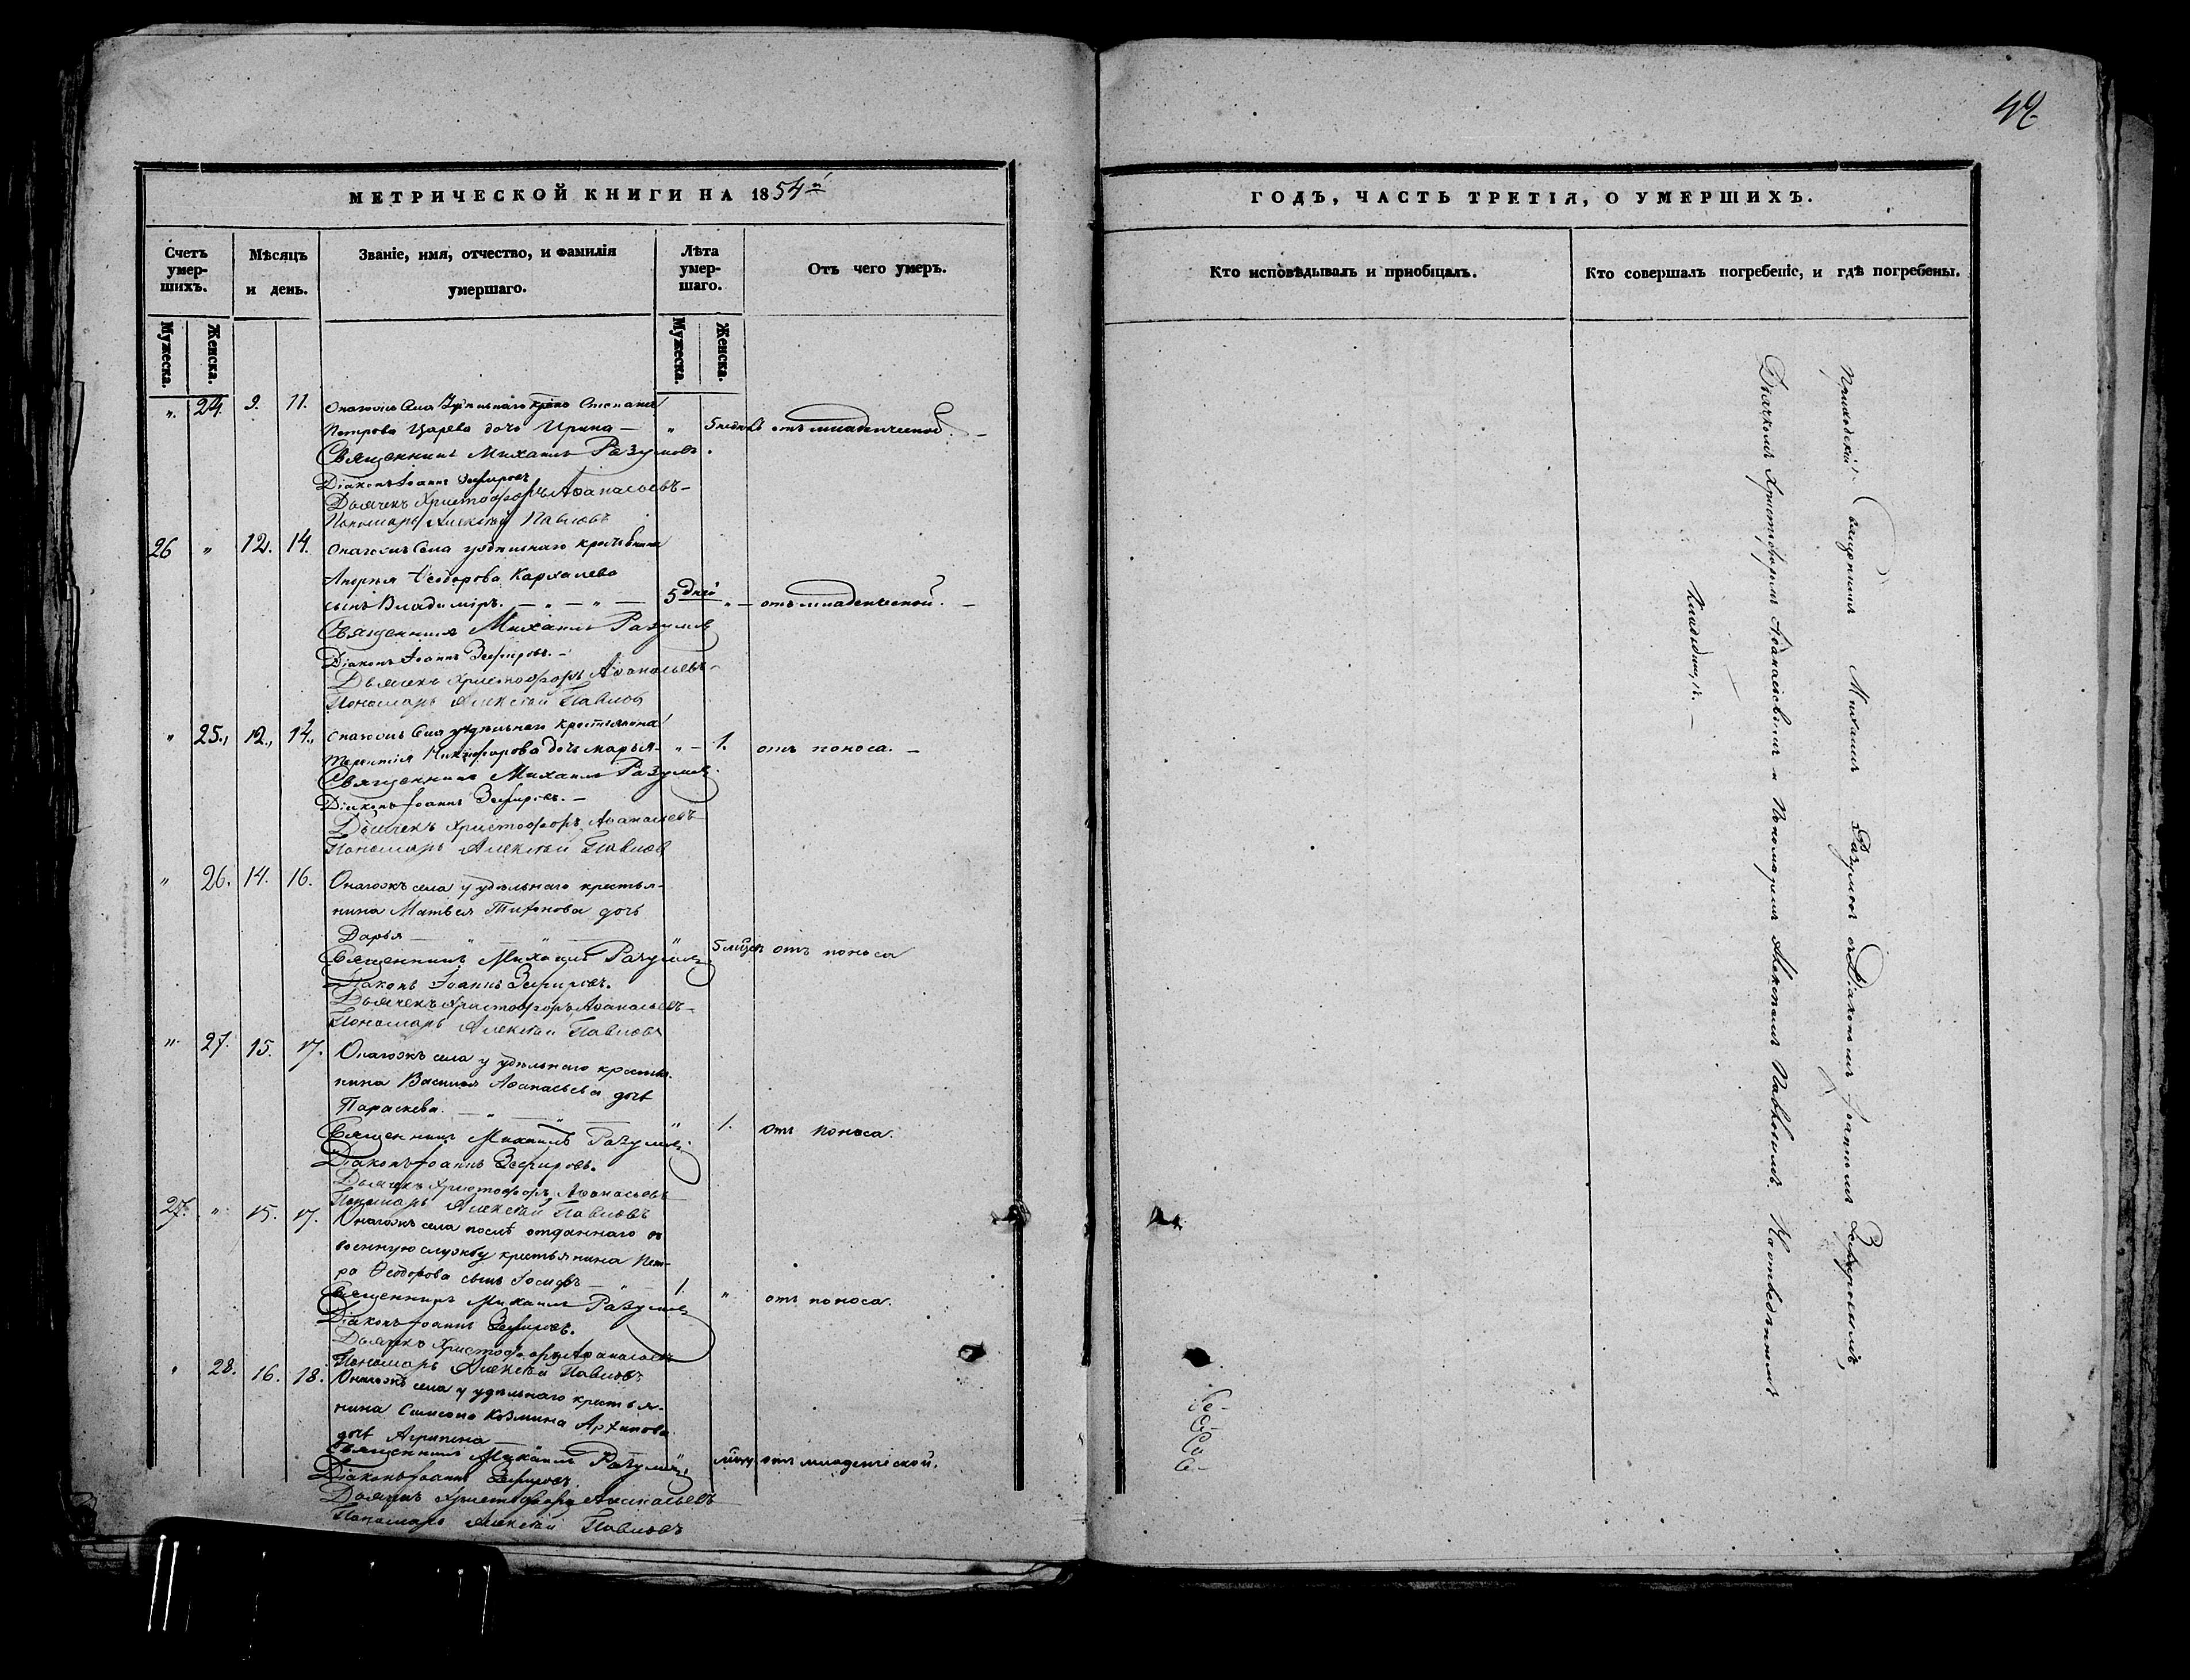 42
МЕТРИЧЕСКОЙ КНИГИ НА 1854й
Счетъ умершихъ.
Мѣсяцъ и день.
Званіе, имя, отчество, и фамилія умершаго.
Лѣта умершаго.
Отъ чего умеръ.
Мужеска.
Женска.
Мужеска.
Женска.
„ 24. 9. 11. села удѣльнаго Степана
Петрова Царева дочь Ирина — „ 5 недѣль отъ младенческой. —
Священникъ Михаилъ Разумовъ.
Діаконъ Іоаннъ Зефировъ
Дьячекъ Христофоръ Аѳанасьевъ —
Пономарь Алексѣй Павловъ
26 „ 12. 14. села удѣльнаго
Андрея Ѳеодорова Кархалева
сынъ Владиміръ. — „ — „ — 5 дней „ — отъ младенческой. —
Священникъ Михаилъ Разумовъ
Діаконъ Іоаннъ Зефировъ. —
Дьячекъ Христофоръ Аѳанасьевъ —
Пономарь Алексѣй Павловъ
„ 25., 12., 14., села удѣльнаго крестьянина
Терентія Никифорова дочь Марья — „ — 1. отъ поноса. —
Священникъ Михаилъ Разумовъ
Діаконъ Іоаннъ Зефировъ. —
Дьячекъ Христофоръ Аѳанасьевъ
Пономарь Алексѣй Павловъ
„ 26. 14. 16. села у удѣльнаго крестья-
нина Матвея Тихонова дочь
Дарья — „ — „ — „ 5 мѣсяц отъ поноса
Священникъ Михаилъ Разумовъ
Діаконъ Іоаннъ Зефировъ.
Дьячекъ Христофоръ Аѳанасьевъ —
Пономарь Алексѣй Павловъ
„ 27. 15. 17. села у удѣльнаго крестья-
нина Василья Аѳанасьева дочь
Параскева. — „ — „ — „ 1. отъ поноса.
Священникъ Михаилъ Разумовъ
Діаконъ Іоаннъ Зефировъ.
Дьячекъ Христофоръ Аѳанасьевъ
Пономарь Алексѣй Павловъ
27. „ 15. 17. села послѣ отданнаго въ
военную службу крестьянина Пет-
ра Ѳеодорова сынъ Іосифъ — „ — 1. „ отъ поноса.
Священникъ Михаилъ Разумовъ
Діаконъ Іоаннъ Зефировъ.
Дьячекъ Христофоръ Аѳанасьевъ
Пономарь Алексѣй Павловъ
„ 28. 16. 18. села у удѣльнаго крестья-
нина Козмина Архипова
дочь Агрипена — „ отъ младенческой.
Священникъ Михаилъ Разумовъ
Діаконъ Іоаннъ Зефировъ
Дьячекъ Христофоръ Аѳанасьевъ
Пономарь Алексѣй Павловъ
ГОДЪ, ЧАСТЬ ТРЕТІЯ, О УМЕРШИХЪ.
Кто исповѣдывалъ и пріобщалъ.
Кто совершалъ погребеніе, и гдѣ погребены.
Приходскій Священникъ Михаилъ Разумовъ съ Діакономъ Іоанномъ Зефировымъ,
Дьячкомъ Христофоромъ Аѳанасьевымъ и Пономаремъ Алексѣемъ Павловымъ. На отведенномъ
кладбищѣ. —